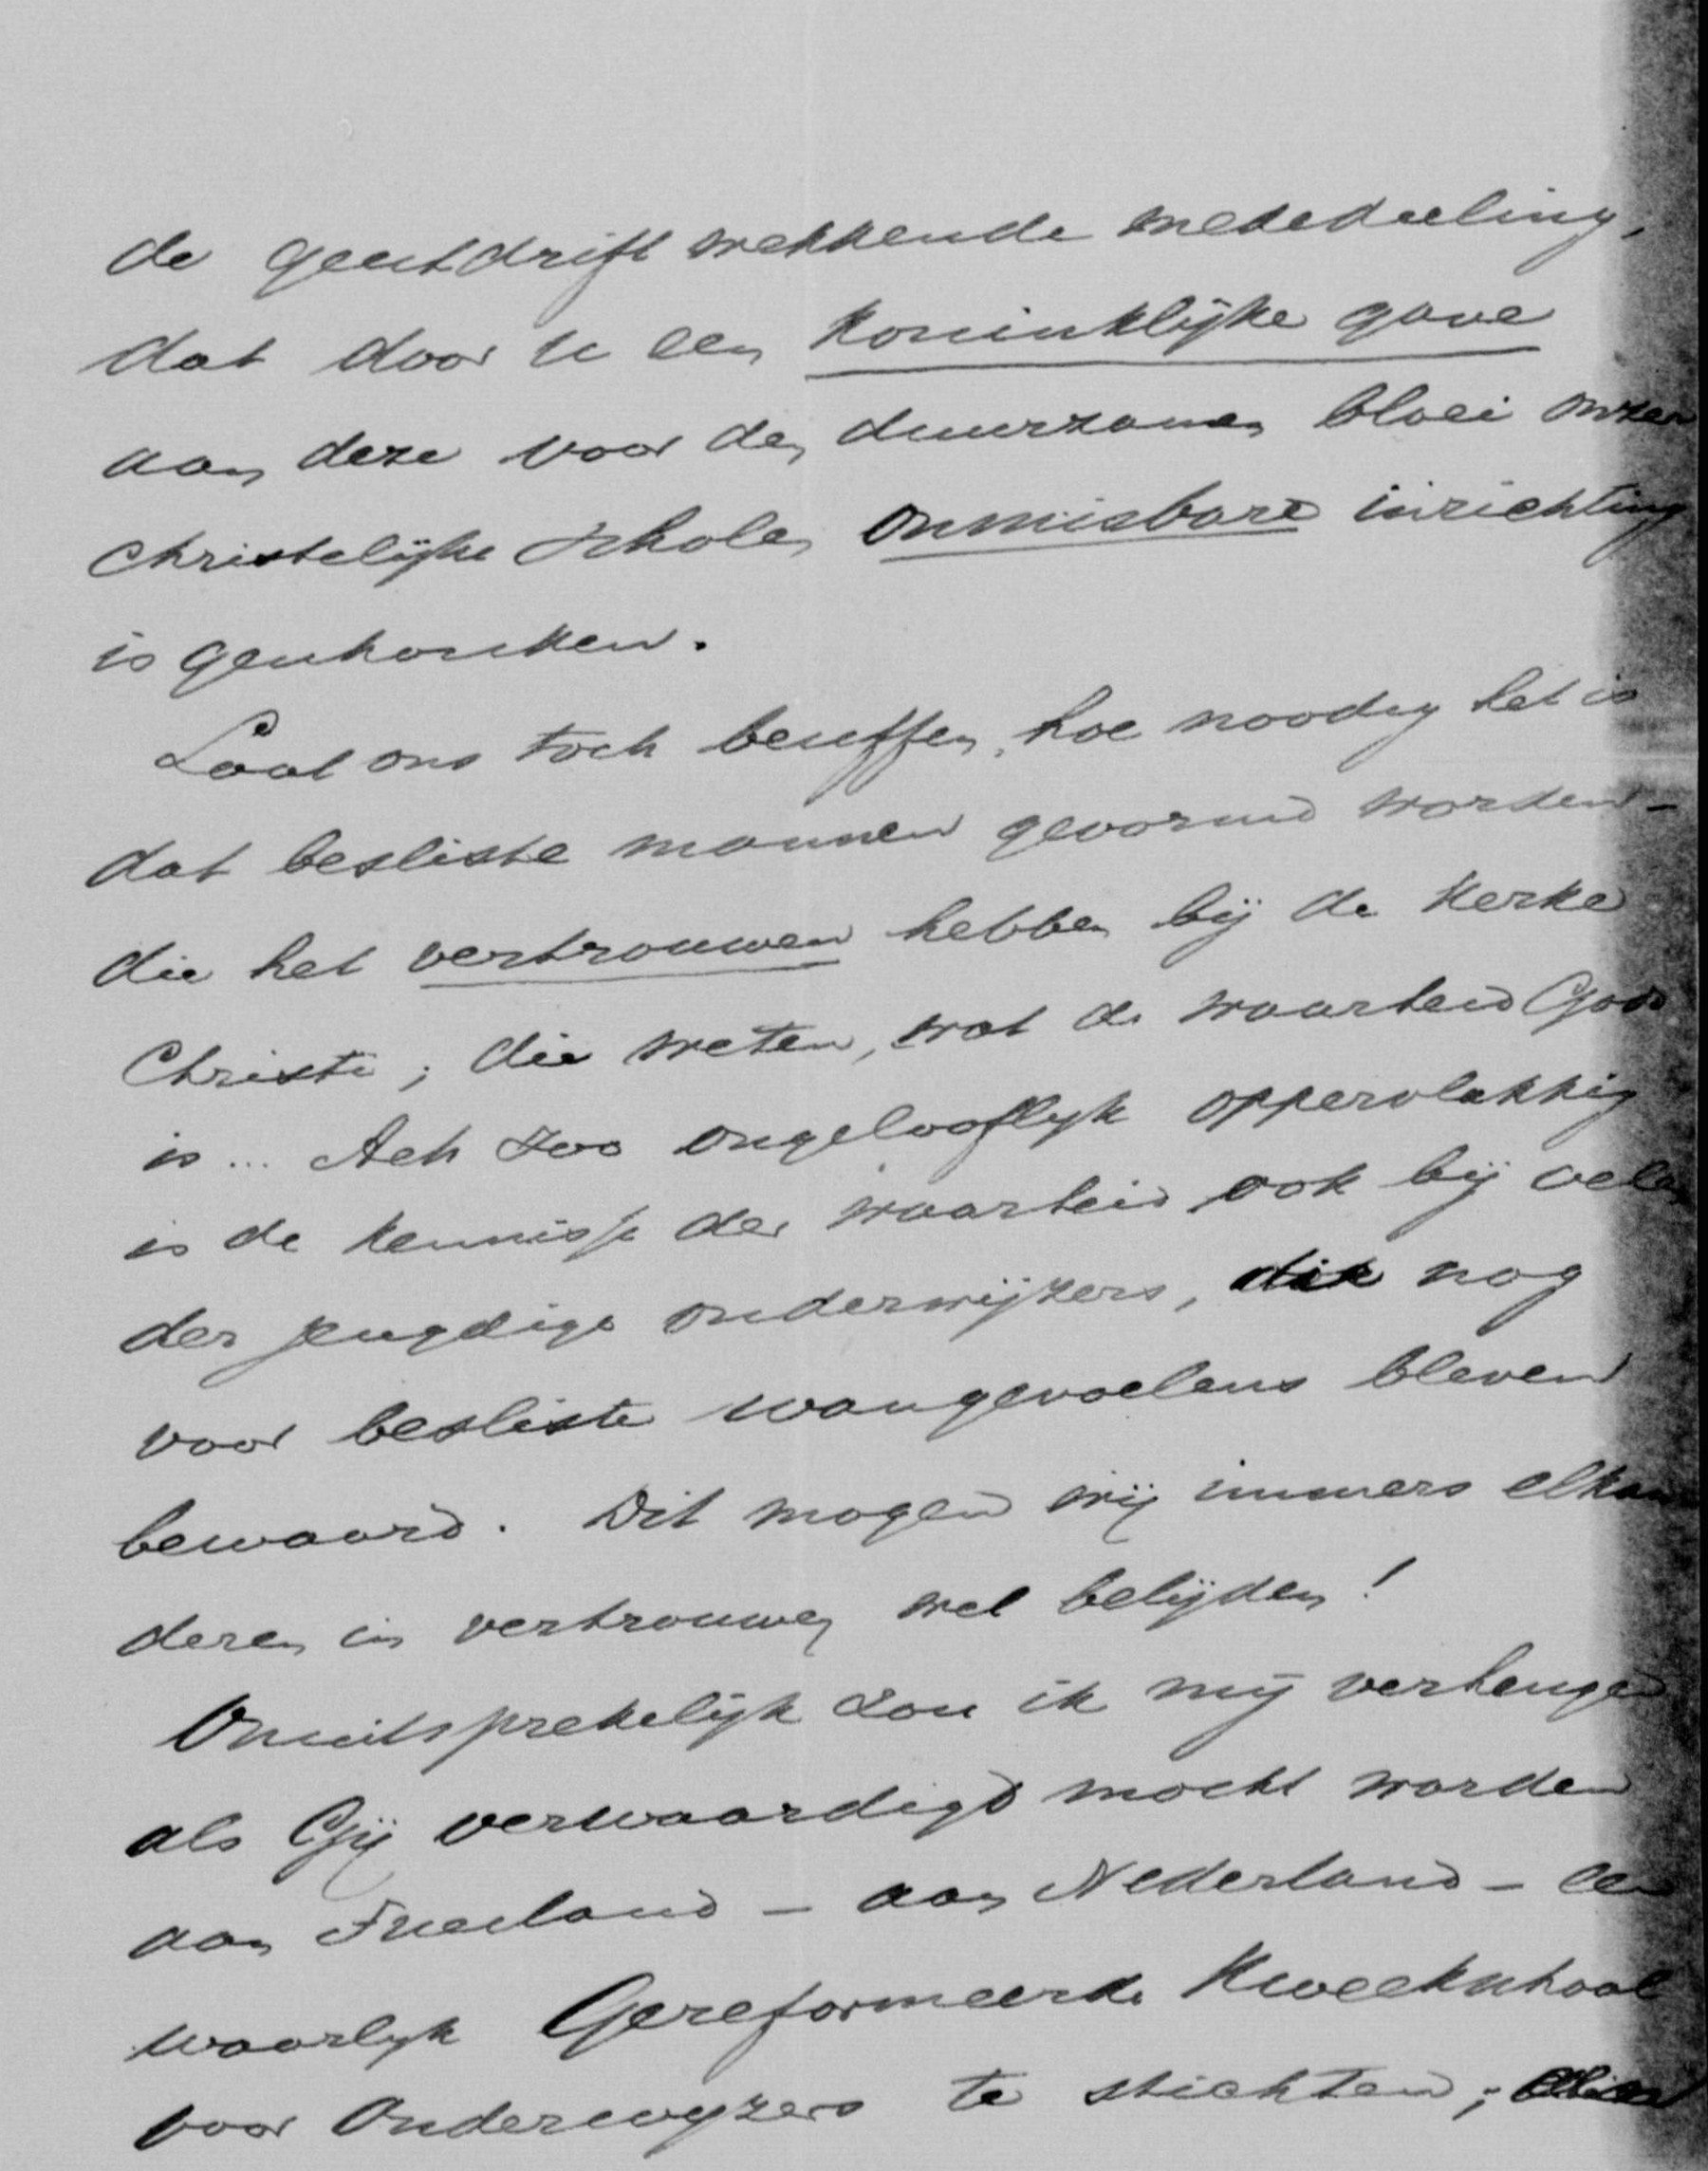 de geestdrift wekkende mededeeling,
dat door U een Koninklijke gave
aan deze voor den duurzamen bloei onzer
Christelijke Scholen onmisbare inrichting
is geschonken.
Laat ons toch beseffen, hoe noodig het is
dat besliste mannen gevormd worden -
die het vertrouwen hebben bij de Kerke
Christi; die weten, wat de waarheid Gods
is... Ach zoo ongelooflijk oppervlakkig
is de kennisse der waarheid ook bij velen
der jeugdige onderwijzers, die nog
voor besliste wangevoelens bleven
bewaard. Dit mogen wij immers elkan
deren in vertrouwen wel belijden!
Onuitsprekelijk zou ik mij verheugen
als Gij verwaardigd mocht worden
aan Friesland - aan Nederland - een
waarlijk Gereformeerde Kweekschool
voor Onderwijzers te stichten;